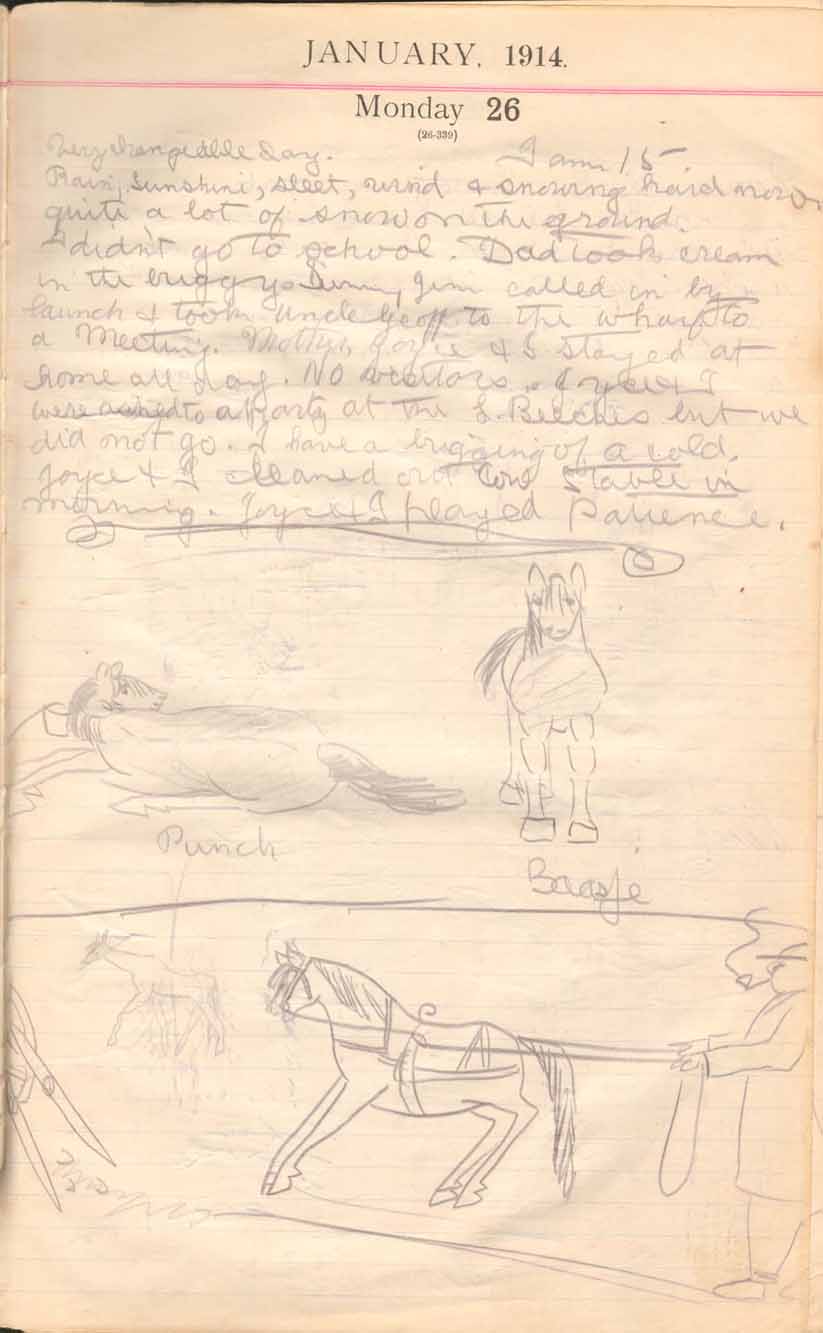 JANUARY, 1914.
Monday 26
(26-339)
Very changeable Day. I am 15.
Rain, Sunshine, sleet, wind & snowing hard now
quite a lot of snow on the ground.
I didn't go to school. Dad took cream
in the buggy. Jim called in by
launch & took Uncle Geoff to the wharf to
a Meeting. Mother, Joyce & I stayed at
home all day. No visitors. Joyce & I
were asked to a Party at the L. Beeches but we
did not go. I have a beginning of a cold.
Joyce & I cleaned out Cow Stable in
morning. Joyce & I played Patience.
Punch